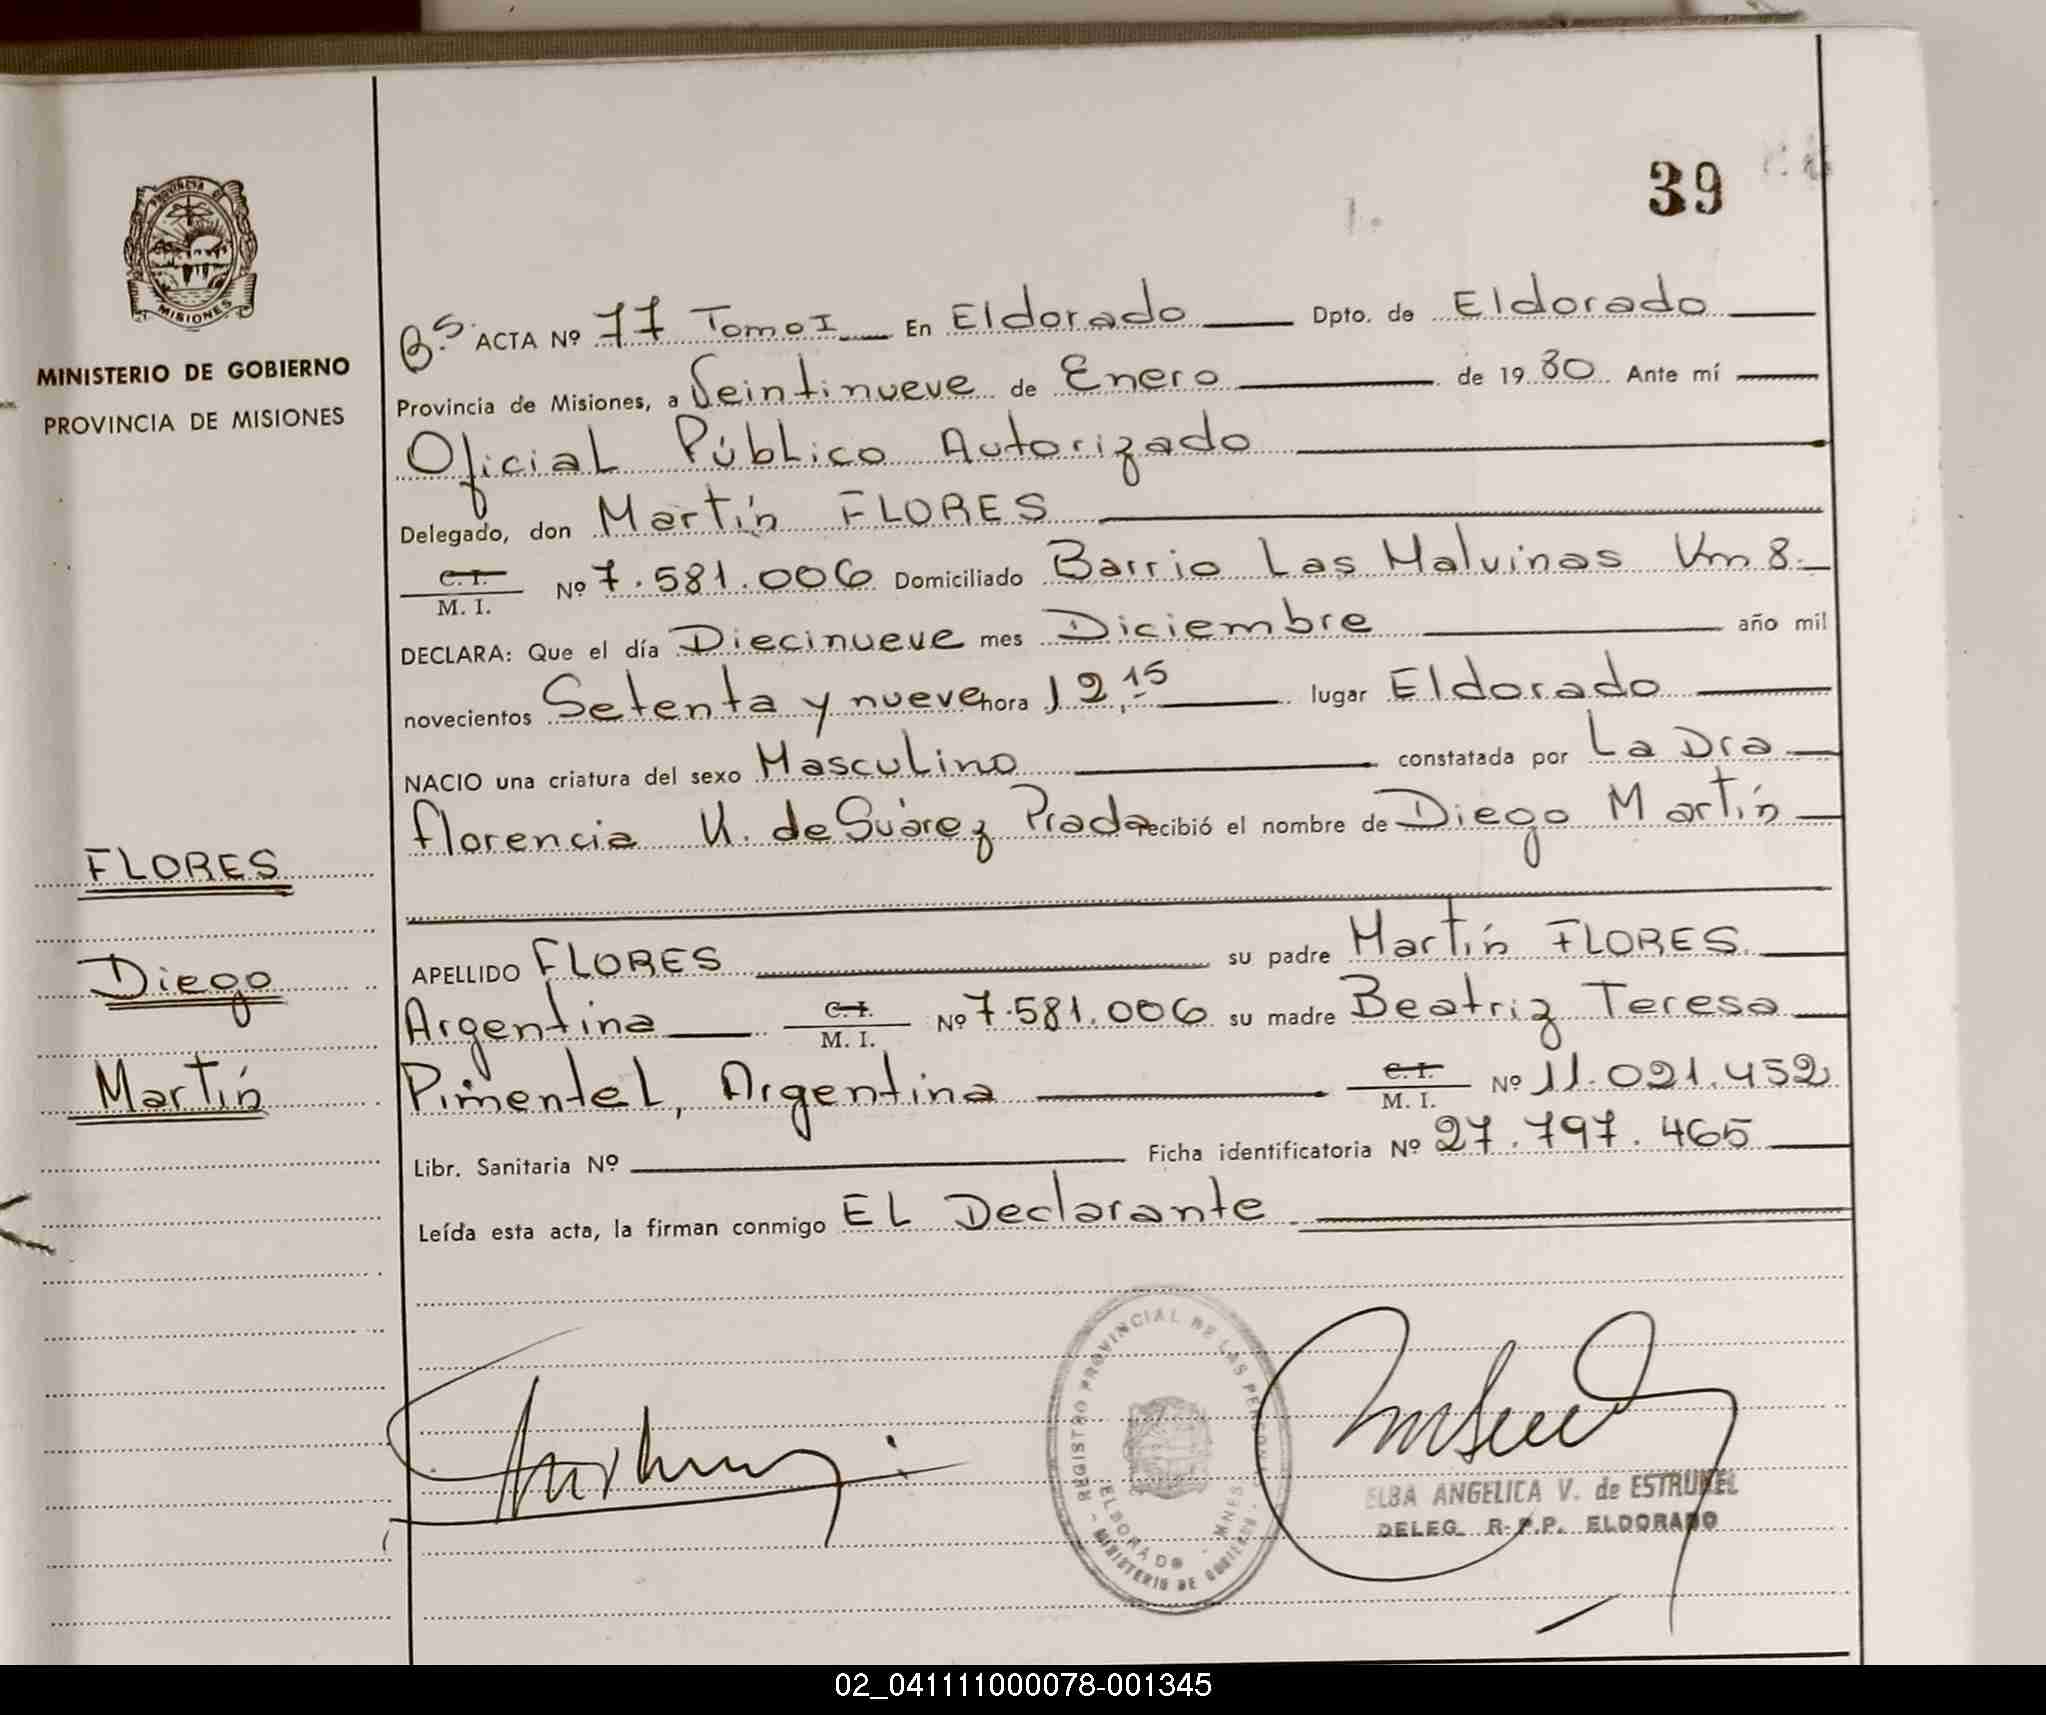 39
PROVINCIA DE
MISIONES
MINISTERIO DE GOBIERNO
PROVINCIA DE MISIONES
FLORES
Diego
Martín
Bs. ACTA Nº 77 Tomo I En Eldorado Dpto. de Eldorado
Provincia de Misiones, a Veintinueve de Enero de 1980 Ante mí
Oficial Público Autorizado
Delegado, don Martín FLORES
C. I.
M. I. Nº 7.581.006 Domiciliado Barrio Las Malvinas Km 8.
DECLARA: Que el día Diecinueve mes Diciembre año mil
novecientos Setenta y nueve hora 12,15 lugar Eldorado
NACIO una criatura del sexo Masculino constatada por La Dra
Florencia K. de Suárez Prada recibió el nombre de Diego Martín
APELLIDO FLORES su padre Martín FLORES.
Argentina C. I. M. I. Nº 7.581.006 su madre Beatriz Teresa
Pimentel, Argentina C. I. M. I. Nº 11.021.452
Libr. Sanitaria Nº Ficha identificatoria Nº 27.797.465
Leída esta acta, la firman conmigo EL Declarante
REGISTRO PROVINCIAL DE LAS PERSONAS
ELDORADO - MNES
- MINISTERIO DE GOBIERNO -
ELBA ANGELICA V. de ESTRUKEL
DELEG. R.P.P. ELDORADO
02_041111000078-001345